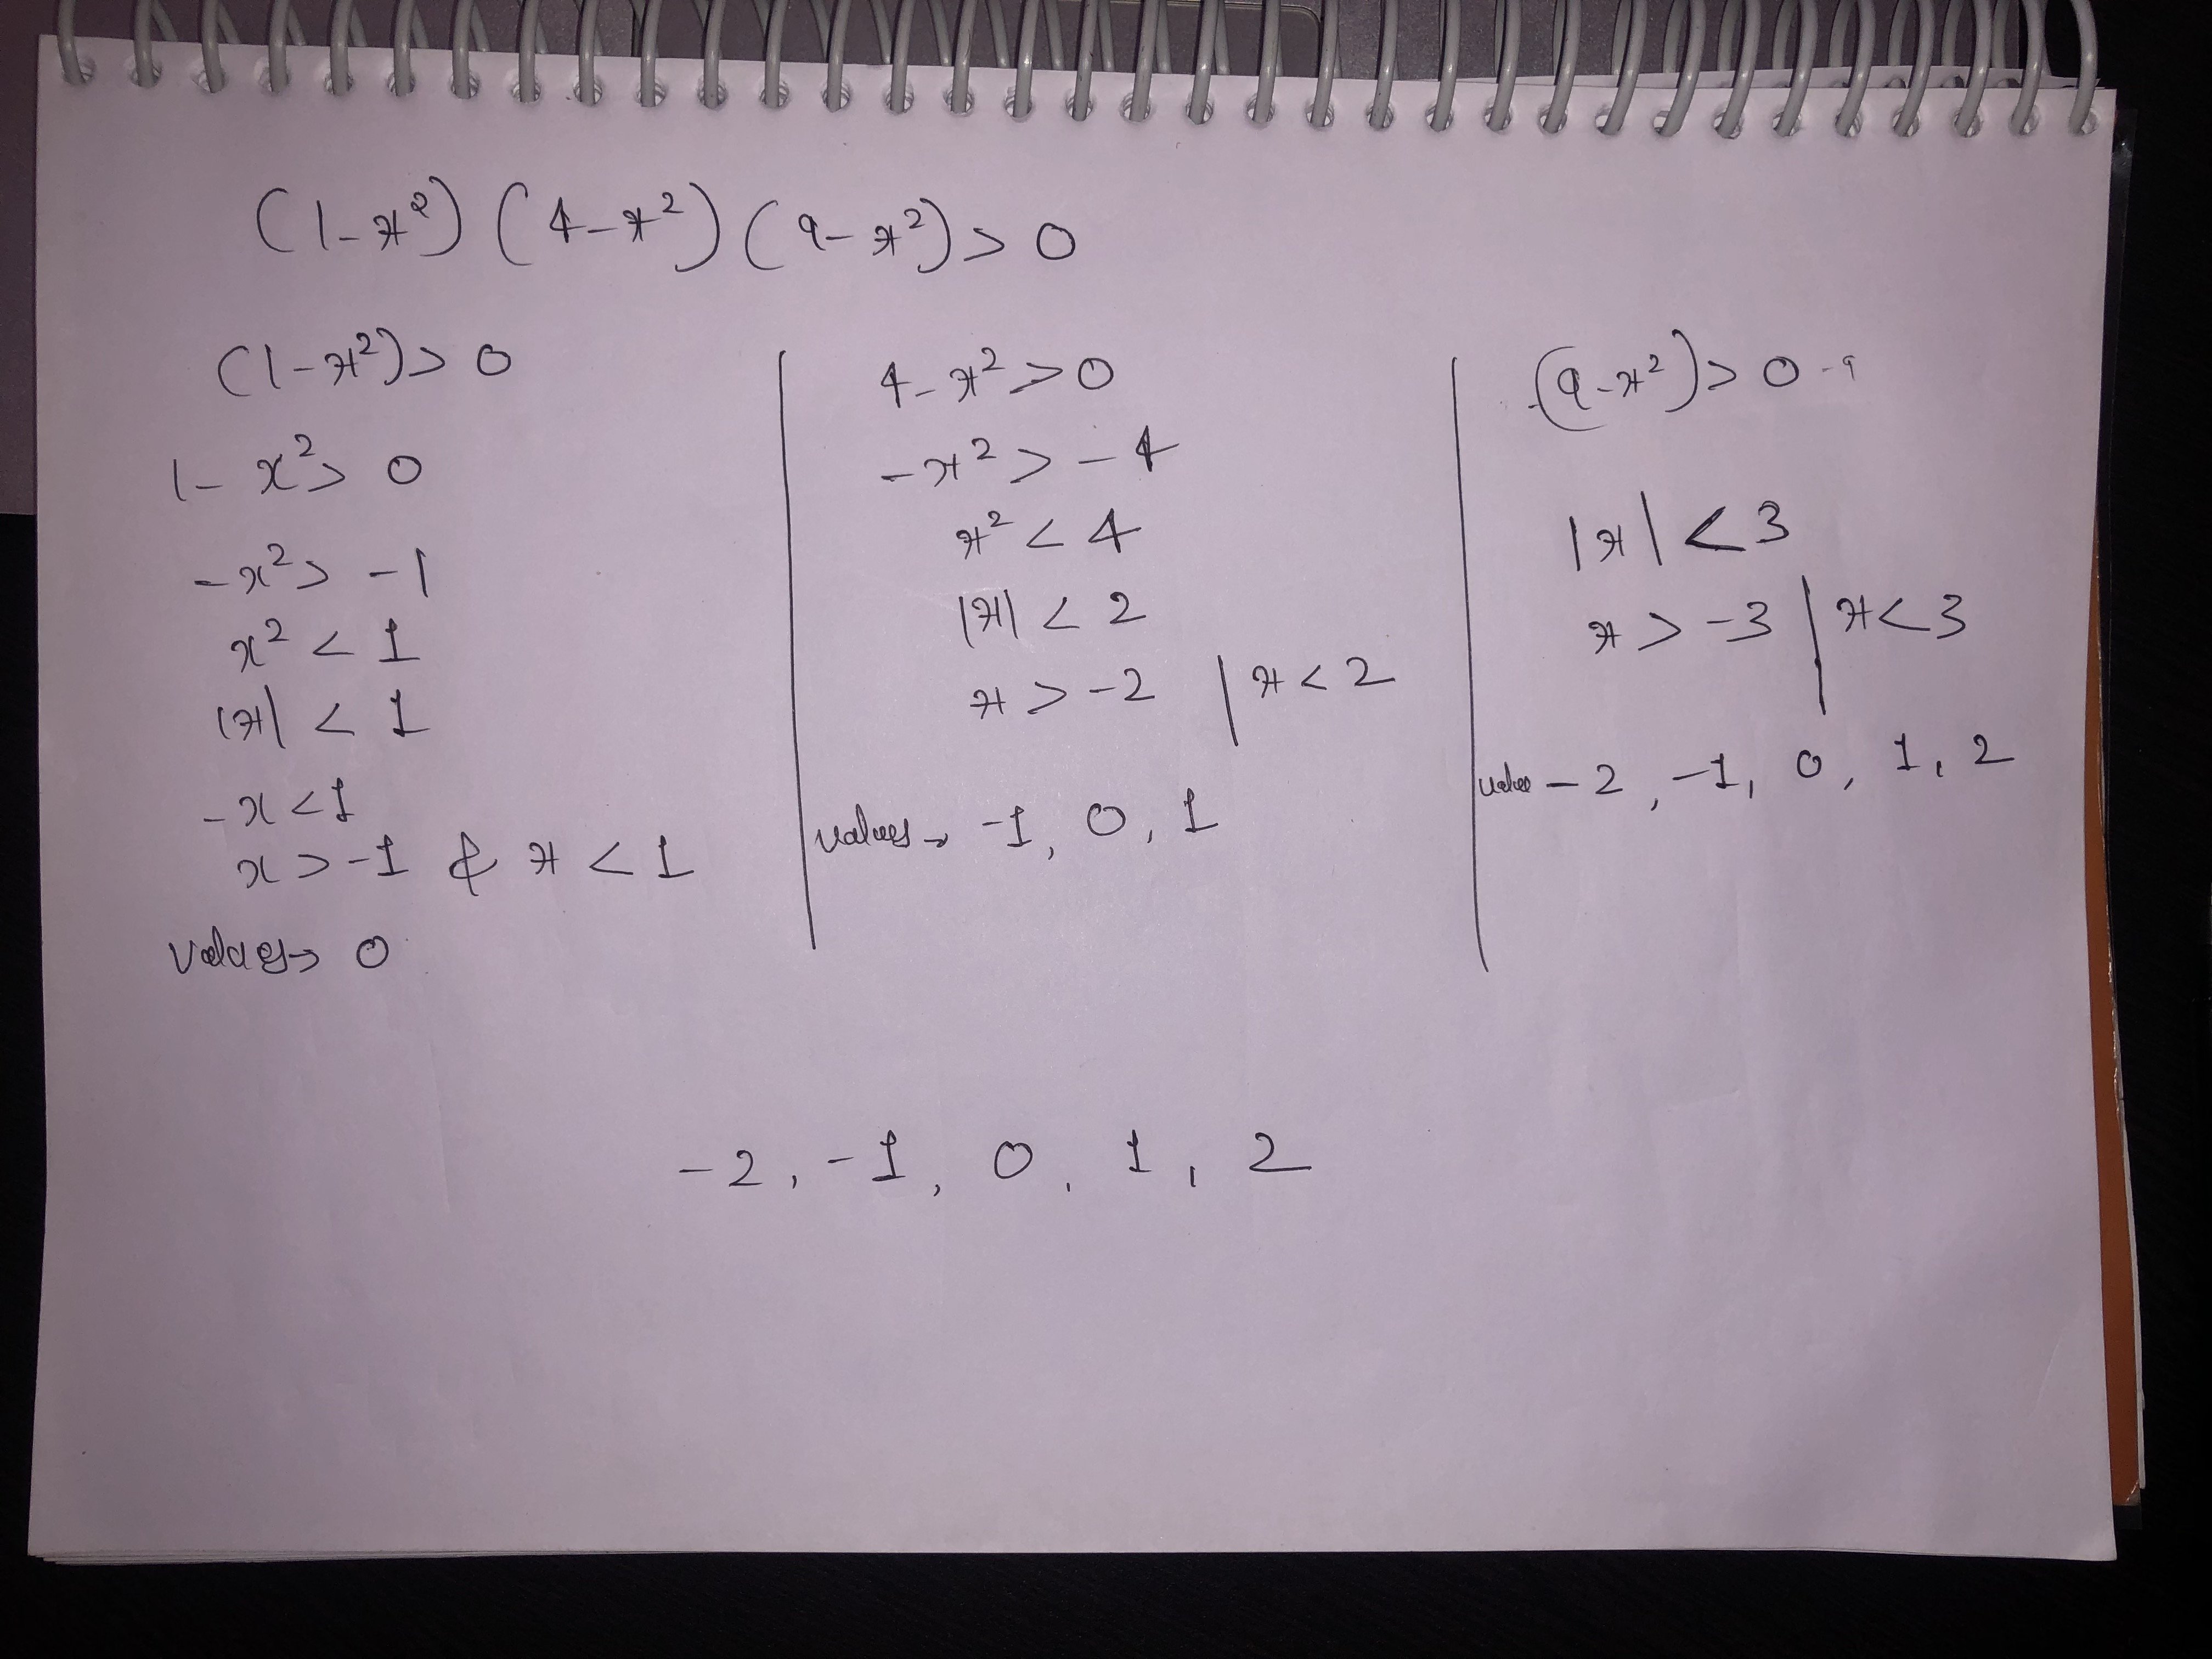 (1-x²) (4-x²) (9-x²) > 0
(1-x²) > 0
1- x² > 0
-x² > -1
x² < 1
|x| < 1
-x < 1
x > -1 & x < 1
Values → 0
4-x² > 0
-x² > -4
x² < 4
|x| < 2
x > -2 | x < 2
values → -1, 0, 1
(9-x²) > 0 -9
|x| < 3
x > -3 | x < 3
values -2, -1, 0, 1, 2
-2, -1, 0, 1, 2